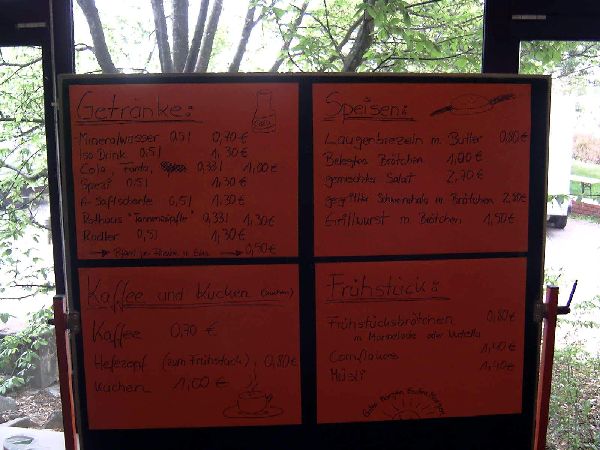 Getränke:
Mineralwasser 0,5l 0,70 €
Iso Drink 0,5l 1,30 €
Cola, Fanta, 0,33l 1,00 €
Spezi 0,5l 1,30 €
A-Saftschorle 0,5l 1,30 €
Rothaus "Tannenzäpfle" 0,33l 1,30 €
Radler 0,5l 1,30 €
Pfand pro Flasche u. Glas 0,50 €
Speisen:
Laugenbrezeln m. Butter 0,80 €
Belegtes Brötchen 1,20 €
gemischter Salat 2,70 €
gegrillter Schweinehals m. Brötchen 2,80 €
Grillwurst m. Brötchen 1,50 €
Kaffee und Kuchen
Kaffee 0,70 €
Hefezopf (zum Frühstück), 0,80 €
Kuchen 1,00 €
Frühstück:
Frühstücksbrötchen 0,80 €
m Marmelade oder Nutella
Cornflakes 1,40 €
Müsli 1,40 €
Guten Morgen